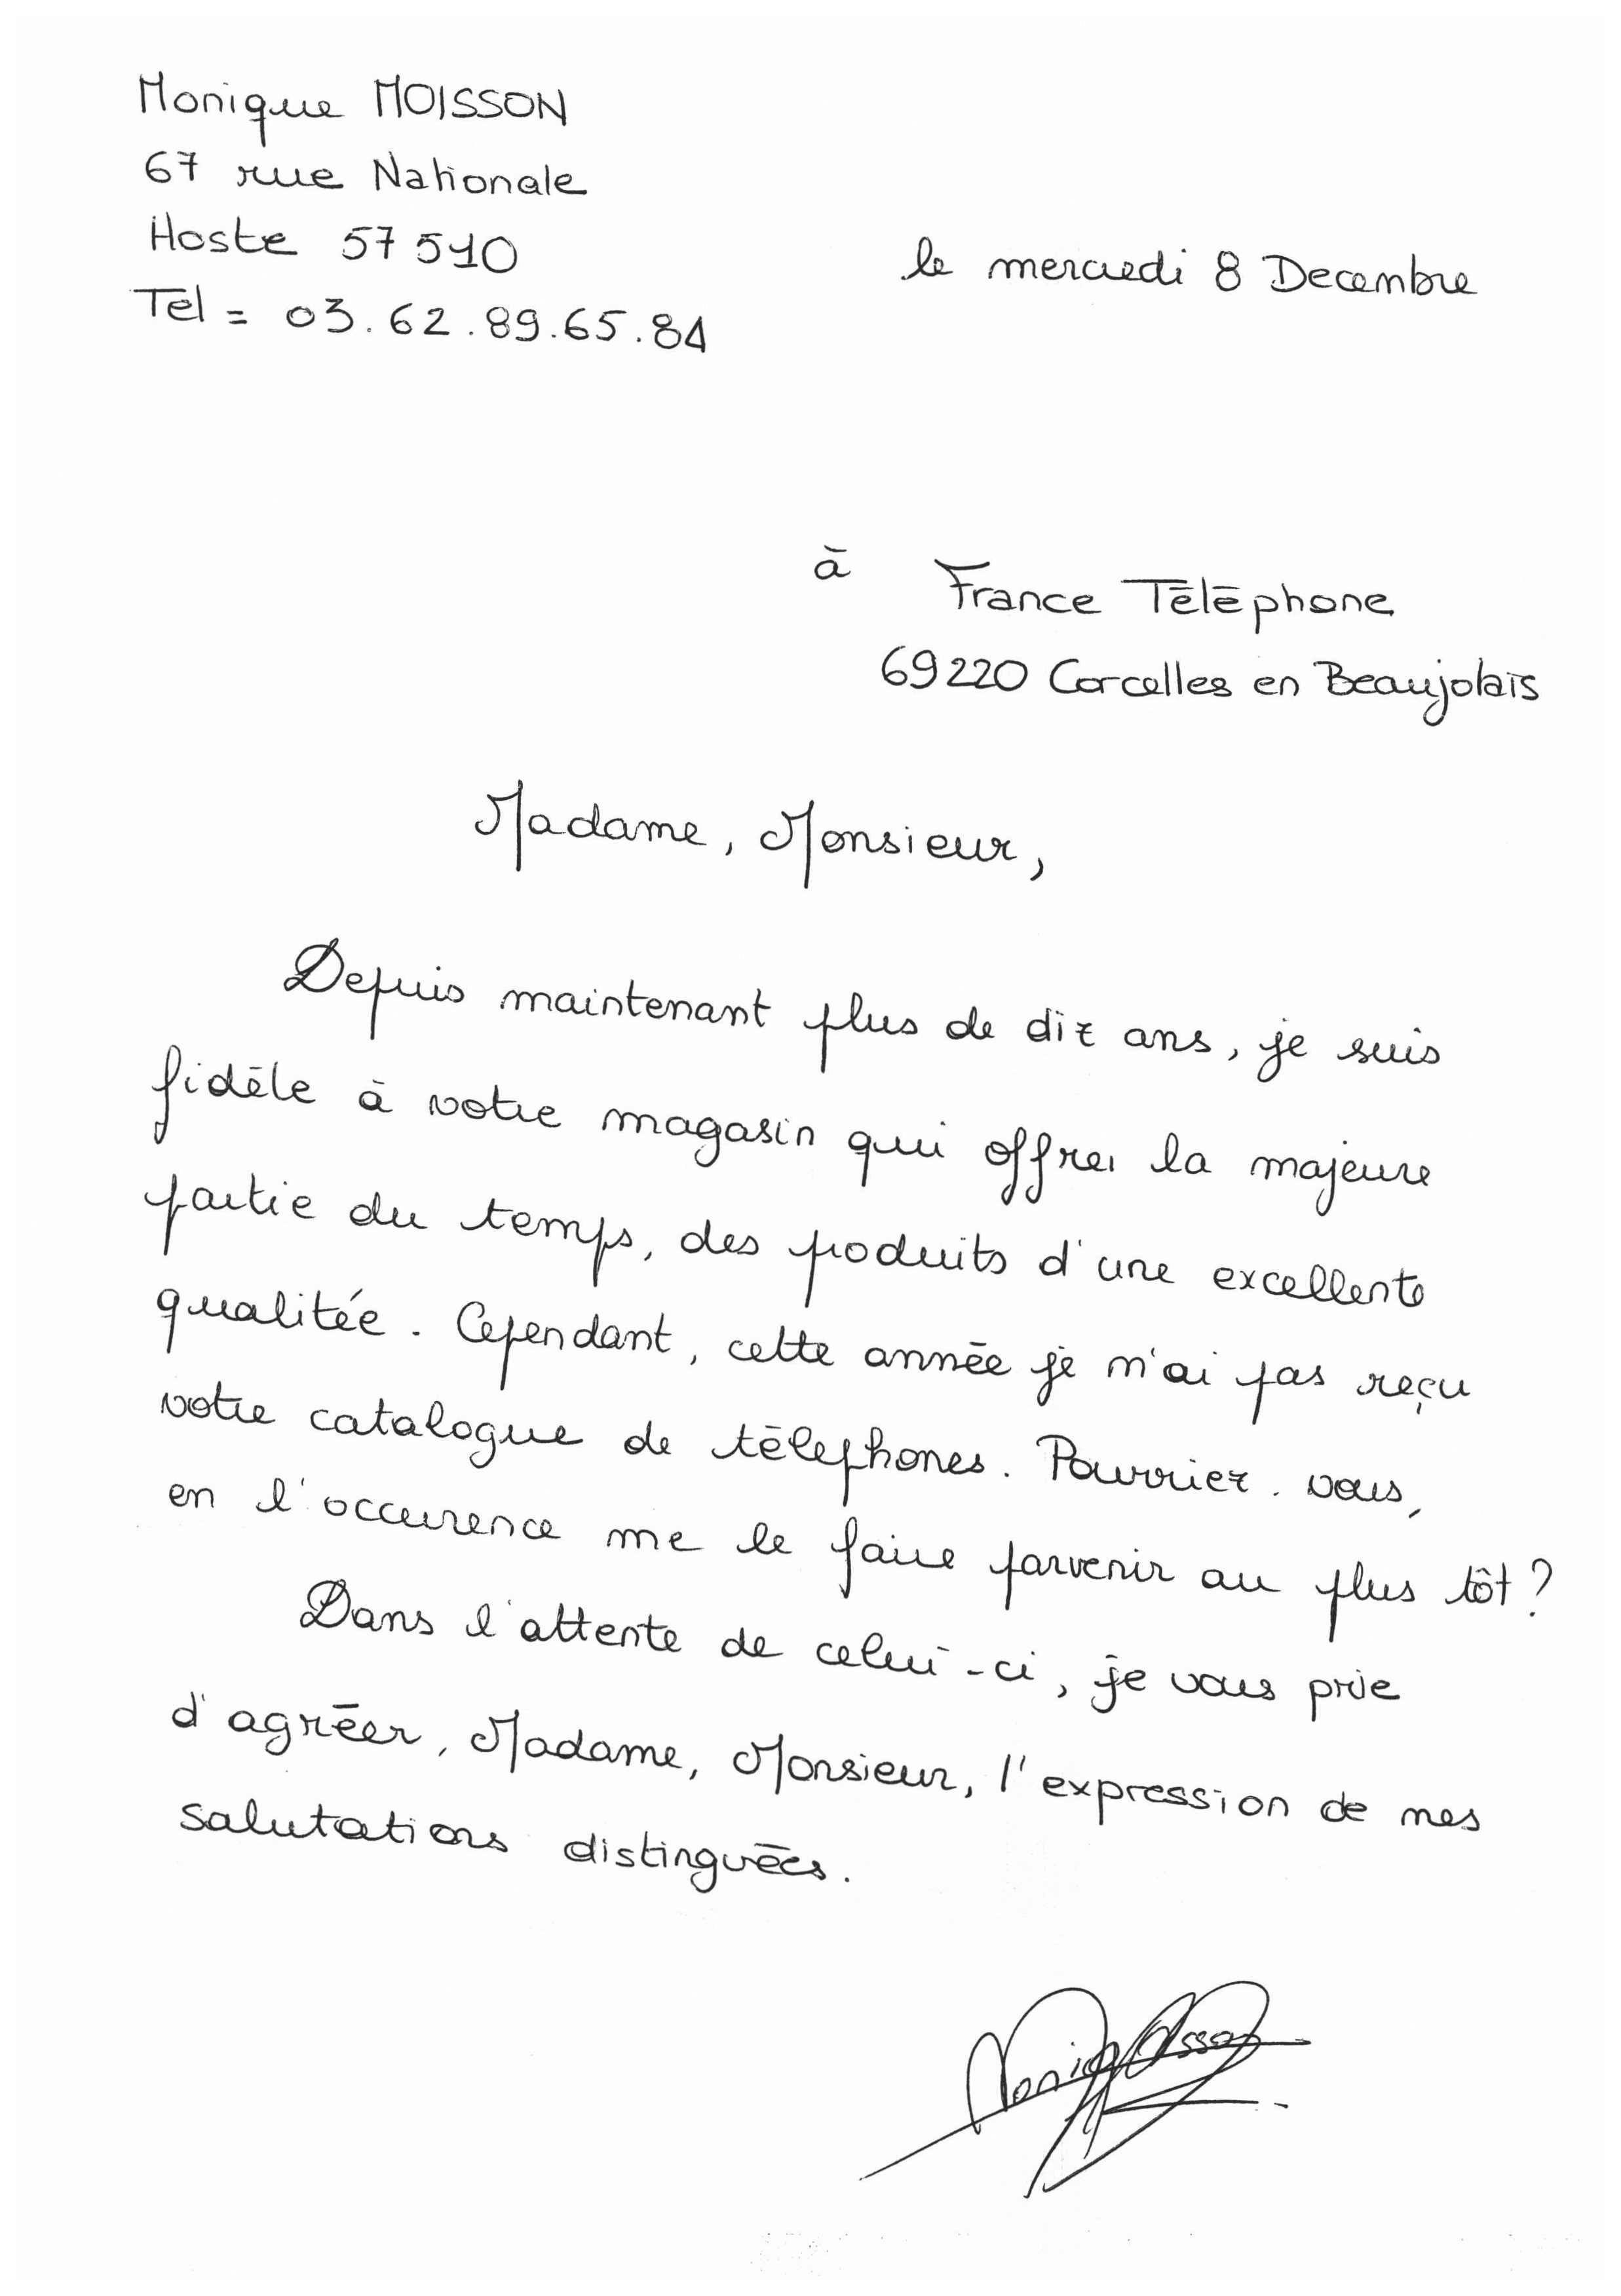 Monique MOISSON
67 rue Nationale
Hoste 57510
Tel = 03.62.89.65.84
le mercredi 8 Decembre
à France Téléphone
69220 Corcelles en Beaujolais
Madame, Monsieur,
Depuis maintenant plus de dix ans, je suis
fidèle à votre magasin qui offre, la majeure
partie du temps, des produits d'une excellente
qualitée. Cependant, cette année je n'ai pas reçu
votre catalogue de téléphones. Pourriez-vous,
en l'occurence me le faire parvenir au plus tôt ?
Dans l'attente de celui-ci, je vous prie
d'agréer, Madame, Monsieur, l'expression de mes
salutations distinguées.